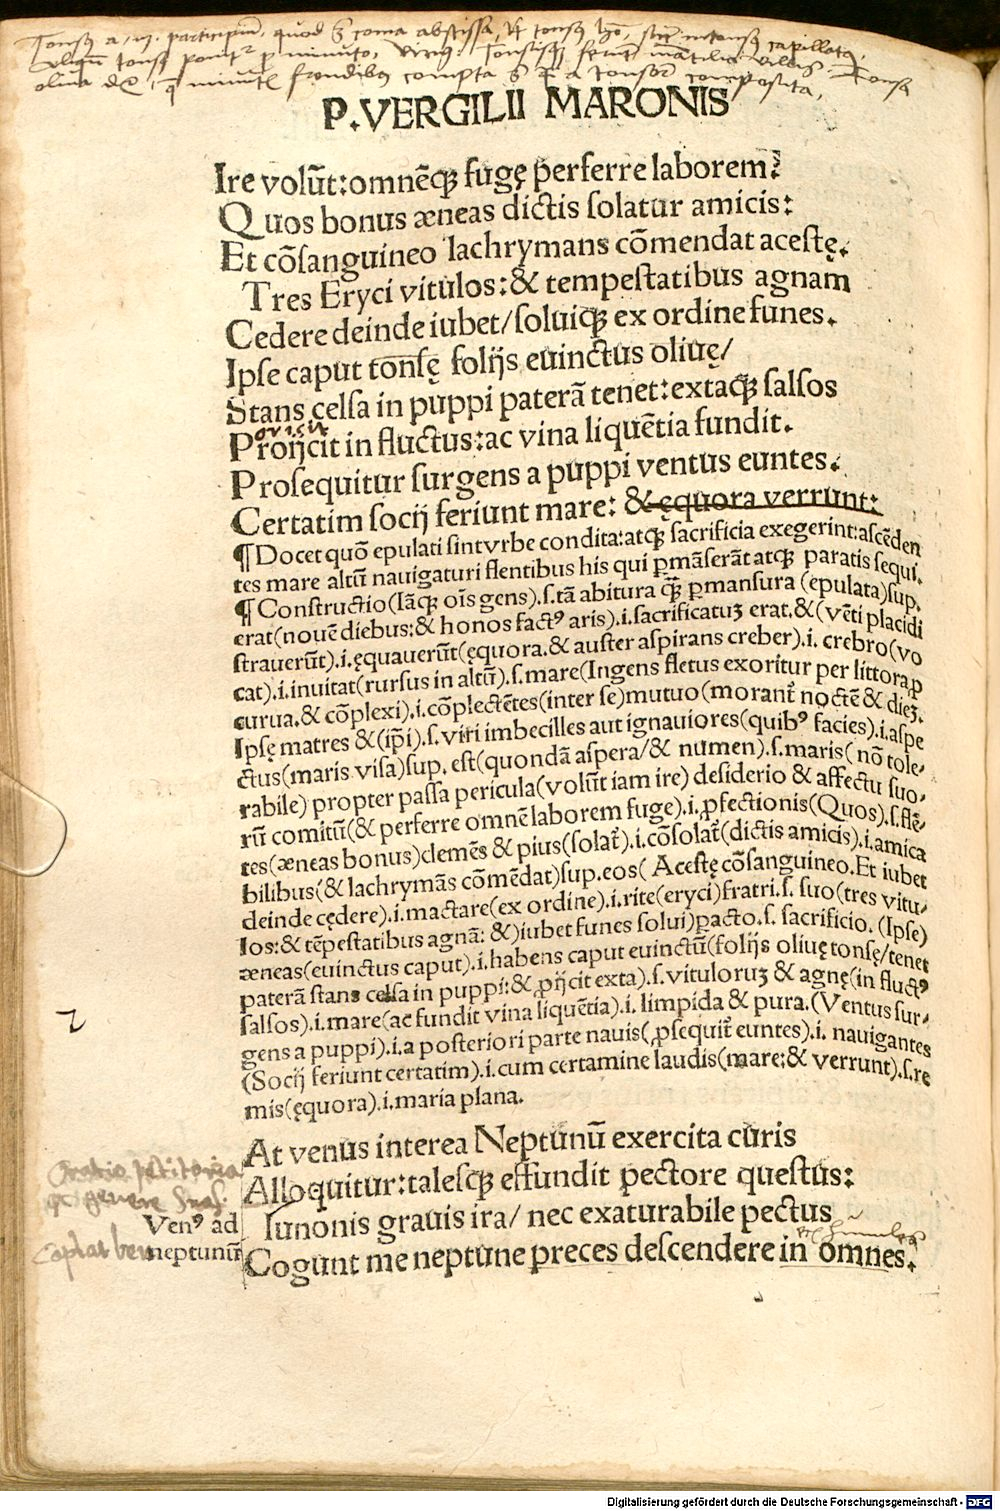 Tonsus a, um. participium, quod est coma abscissa, ut tonsus homo,
aliquando tonsus ponitur pro minuto, Virg. Tonsisque ferunt mantilia villis. Tonsa
oliva frondibus compta
P. VERGILII MARONIS
Ire volūt: omnēq; fugę perferre laborem:
Quos bonus æneas dictis solatur amicis:
Et cōsanguineo lachrymans cōmendat acestę.
Tres Eryci vitulos: & tempestatibus agnam
Cedere deinde iubet/ soluiq; ex ordine funes.
Ipse caput tonsę folijs euinctus oliuę/
Stans celsa in puppi paterā tenet: extaq; salsos
Proijcit in fluctus: ac vina liquētia fundit.
Prosequitur surgens a puppi ventus euntes.
Certatim socij feriunt mare: & ęquora verrunt:
¶ Docet quō epulati sint vrbe condita: atq; sacrificia exegerint: ascēden
tes mare altū nauigaturi flentibus his qui p̱māserāt atq; paratis sequi.
¶ Constructio (Iāq; oīs gens). s. tā abitura q̄ꝫ p̱mansura (epulata) sup.
erat (nouē diebus: & honos fact⁹ aris). i. sacrificatuꝫ erat. & (vēti placidi
strauerūt). i. ęquauerūt (ęquora. & auster aspirans creber). i. crebro (vo
cat). i. inuitat (rursus in altū). s. mare (Ingens fletus exoritur per littora p̱
curua. & cōplexi). i. cōplectētes (inter se) mutuo (morant̄ noctē & dieꝫ.
Ipsę matres & (ip̄i). s. viri imbecilles aut ignauiores (quib⁹ facies). i. aspe
ctus (maris visa) sup. est (quondā aspera/ & numen). s. maris (nō tole/
rabile) propter passa pericula (volūt iam ire) desiderio & affectu suo/
rū comitū (& perferre omnē laborem fuge). i. ꝓfectionis (Quos). s. flē/
tes (æneas bonus) clemēs & pius (solat̄). i. cōsolat̄ (dictis amicis). i. amica
bilibus (& lachrymās cōmēdat) sup. eos (Acestę cōsanguineo. Et iubet
deinde cędere). i. mactare (ex ordine). i. rite (eryci) fratri. s. suo (tres vitu/
los: & tēpestatibus agnā: &) iubet funes solui) p̱acto. s. sacrificio. (Ipse)
æneas (euinctus caput). i. habens caput euinctū (folijs oliuę tonsę/ tenet
paterā stans celsa in puppi: & ꝓijcit exta). s. vituloruꝫ & agnę (in fluct⁹
salsos). i. mare (ac fundit vina liquētia). i. limpida & pura. (Ventus sur/
gens a puppi). i. a posteriori parte nauis (ꝓsequit̄ euntes). i. nauigantes
(Socij feriunt certatim). i. cum certamine laudis (mare: & verrunt). s. re
mis (ęquora). i. maria plana.
At venus interea Neptunū exercita curis
Alloquitur: talesq; effundit pectore questus:
Oratio petitoria
Iunonis grauis ira/ nec exaturabile pectus
Ven⁹ ad
neptunū
Cogunt me neptune preces descendere in omnes.
Digitalisierung gefördert durch die Deutsche Forschungsgemeinschaft - DFG